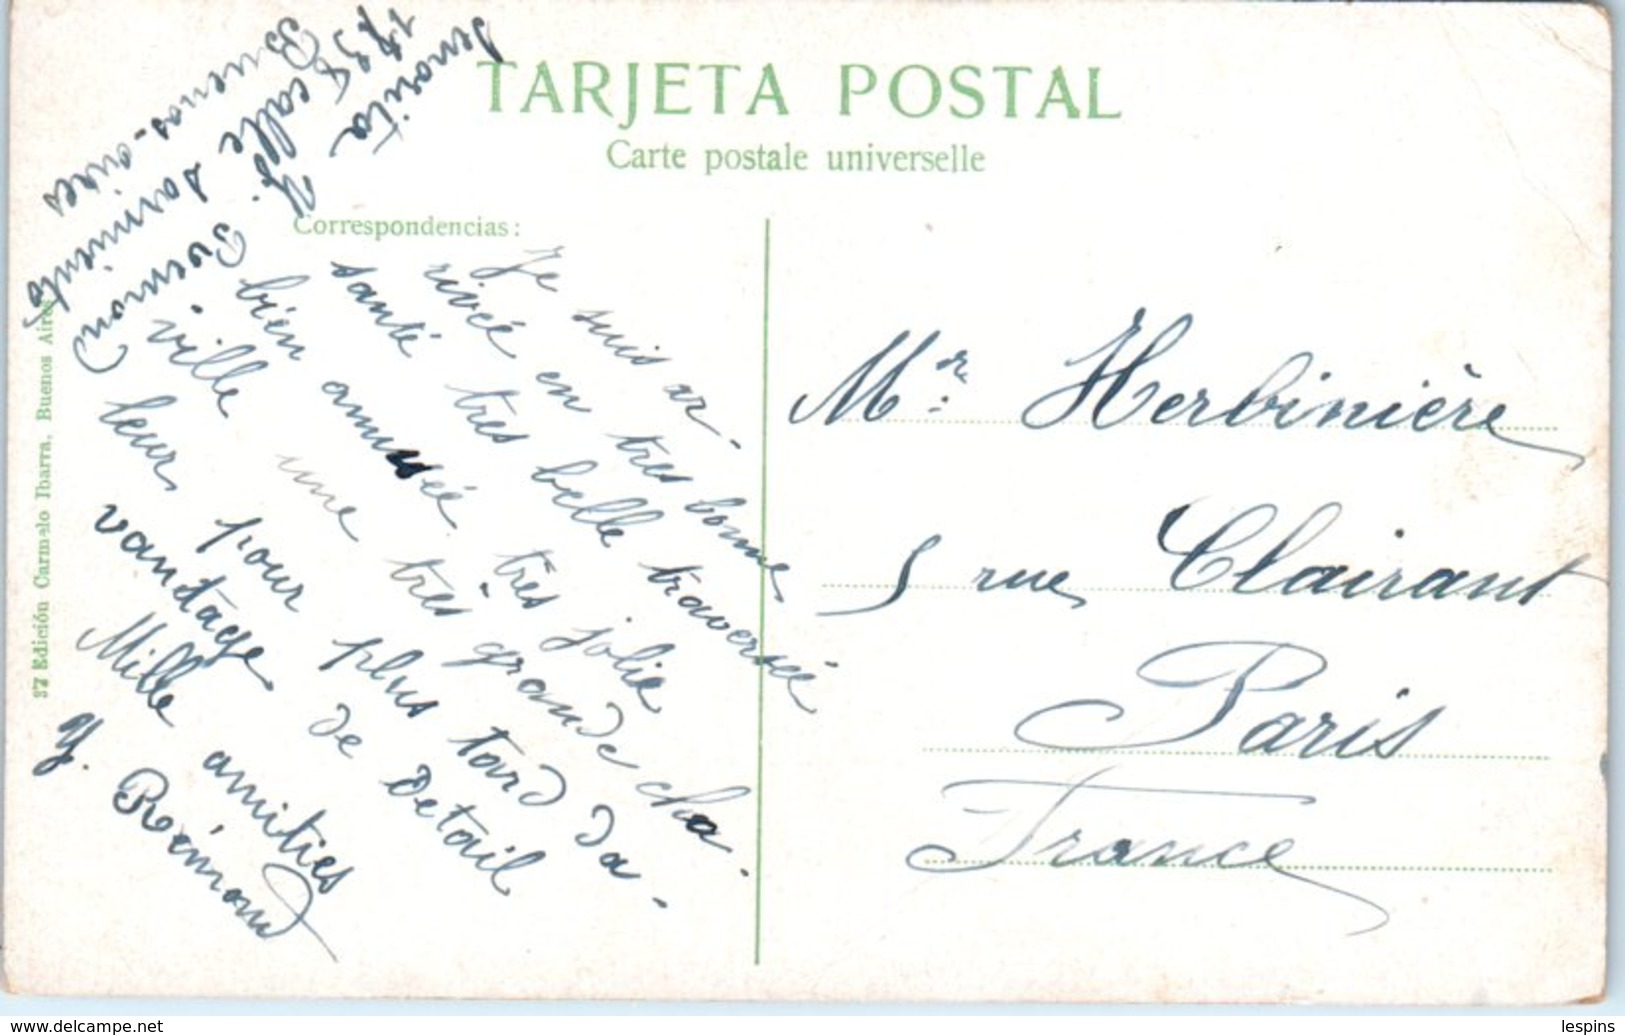 TARJETA POSTAL
Carte postale universelle
Correspondencias:
Je suis ar-
rivée en très bonne
santé très belle traversée
bien amusée. très jolie
ville une très grande cha-
leur, pour plus tard da-
vantage de detail
Mille amities
Y. Rémond
Senorita
Y. Rémond
calle Sarmiento
Buenos-aires
Mr: Herbinière
5 rue Clairaut
Paris
France
37 Edición Carmelo Ibarra. Buenos Aires
www.delcampe.net
lespins